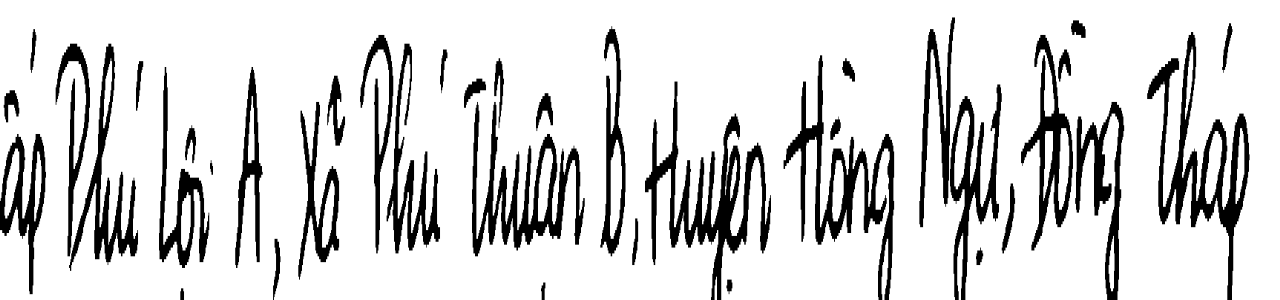 ấp Phú Lợi A, Xã Phú Thuận B, Huyện Hồng Ngự, Đồng Tháp